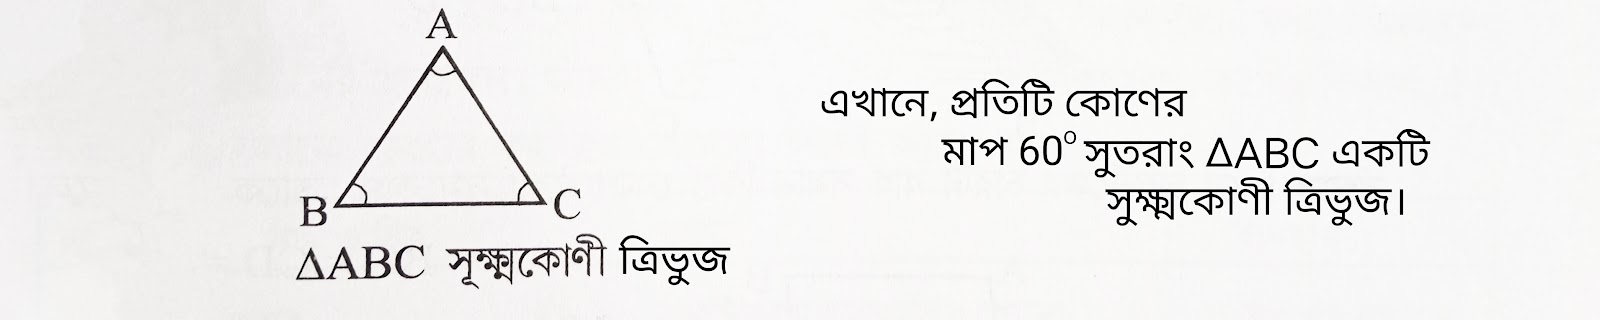 A
B
C
ΔABC সূক্ষ্মকোণী ত্রিভুজ
এখানে, প্রতিটি কোণের
মাপ 60° সুতরাং ΔABC একটি
সুক্ষ্মকোণী ত্রিভুজ।